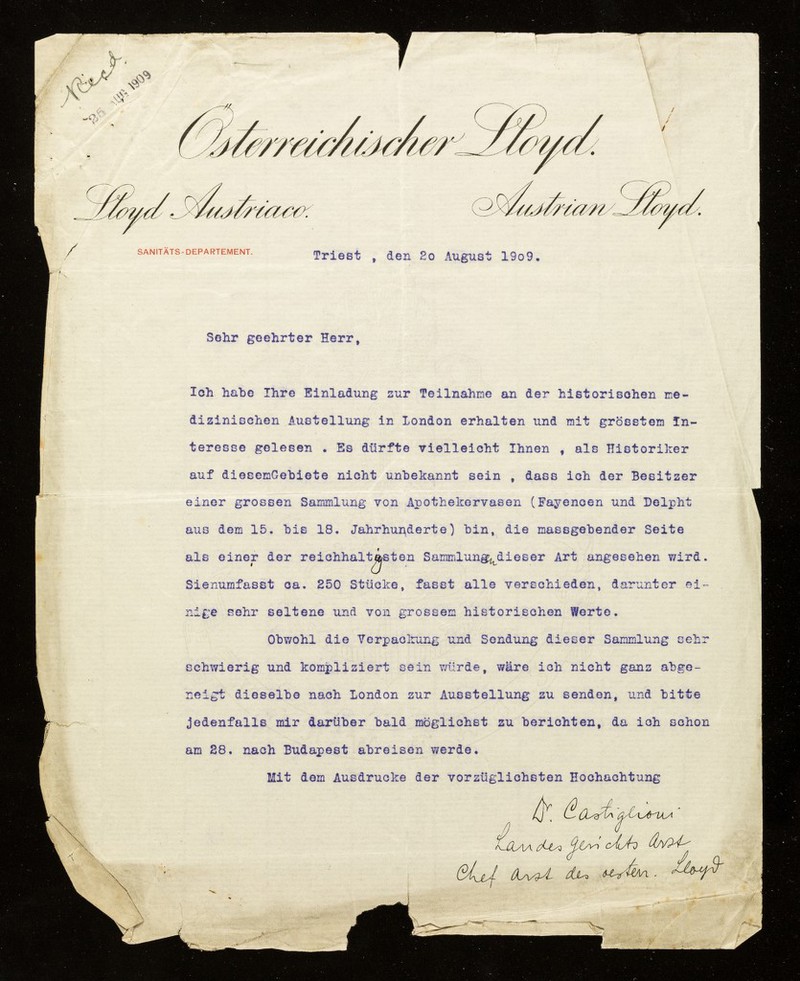 Recd.
26 AUG 1909
Österreichischer Lloyd.
Lloyd Austriaco.
Austrian Lloyd.
SANITÄTS-DEPARTEMENT.
Triest , den 2o August 19o9.
Sehr geehrter Herr,
Ich habe Ihre Einladung zur Teilnahme an der historischen me-
dizinischen Austellung in London erhalten und mit grösstem In-
teresse gelesen . Es dürfte vielleicht Ihnen , als Historiker
auf diesemGebiete nicht unbekannt sein , dass ich der Besitzer
einer grossen Sammlung von Apothekervasen (Fayencen und Delpht
aus dem 15. bis 18. Jahrhunderte) bin, die massgebender Seite
als einer der reichhaltigsten Sammlungen dieser Art angesehen wird.
Sienumfasst ca. 250 Stücke, fasst alle verschieden, darunter ei-
nige sehr seltene und von grossem historischen Werte.
Obwohl die Verpackung und Sendung dieser Sammlung sehr
schwierig und kompliziert sein würde, wäre ich nicht ganz abge-
neigt dieselbe nach London zur Ausstellung zu senden, und bitte
jedenfalls mir darüber bald möglichst zu berichten, da ich schon
am 28. nach Budapest abreisen werde.
Mit dem Ausdrucke der vorzüglichsten Hochachtung
Dr. Castiglioni
Landesgerichts Arzt
Chef Arzt des oesterr. Lloyd